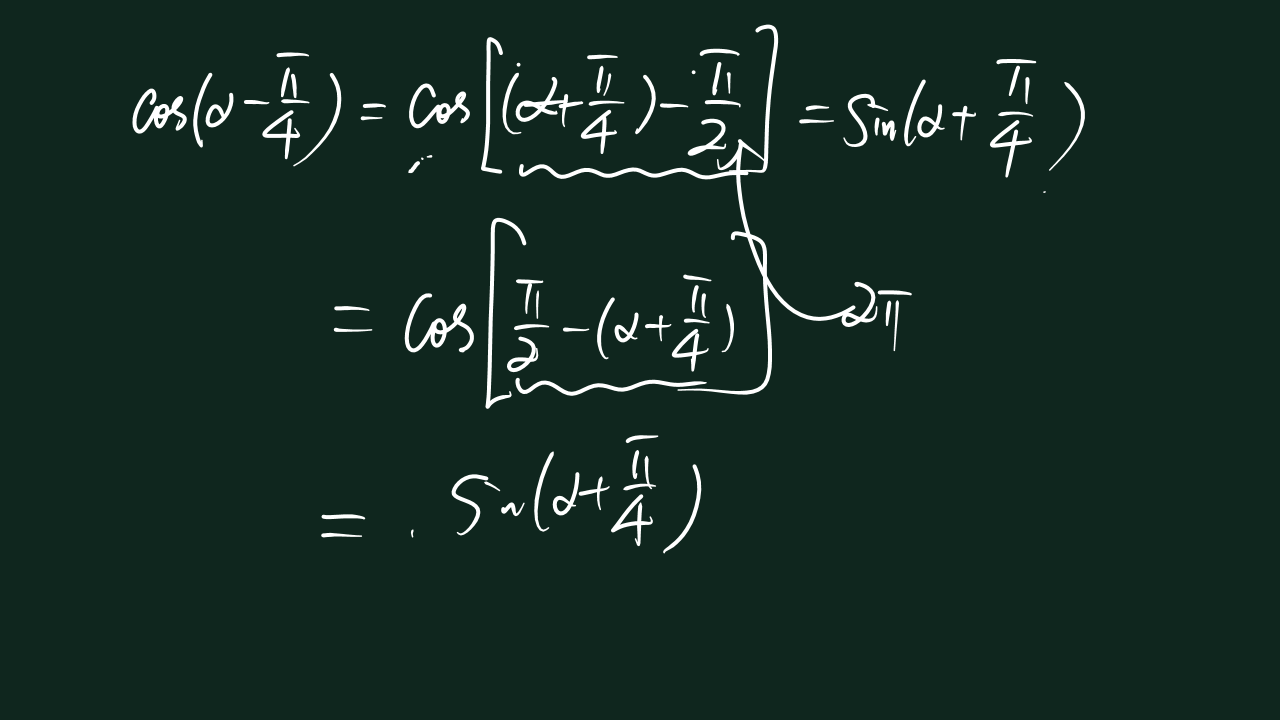 cos(α - π/4) = cos[(α + π/4) - π/2] = sin(α + π/4)
= cos[π/2 - (α + π/4)] 2π
= sin(α + π/4)